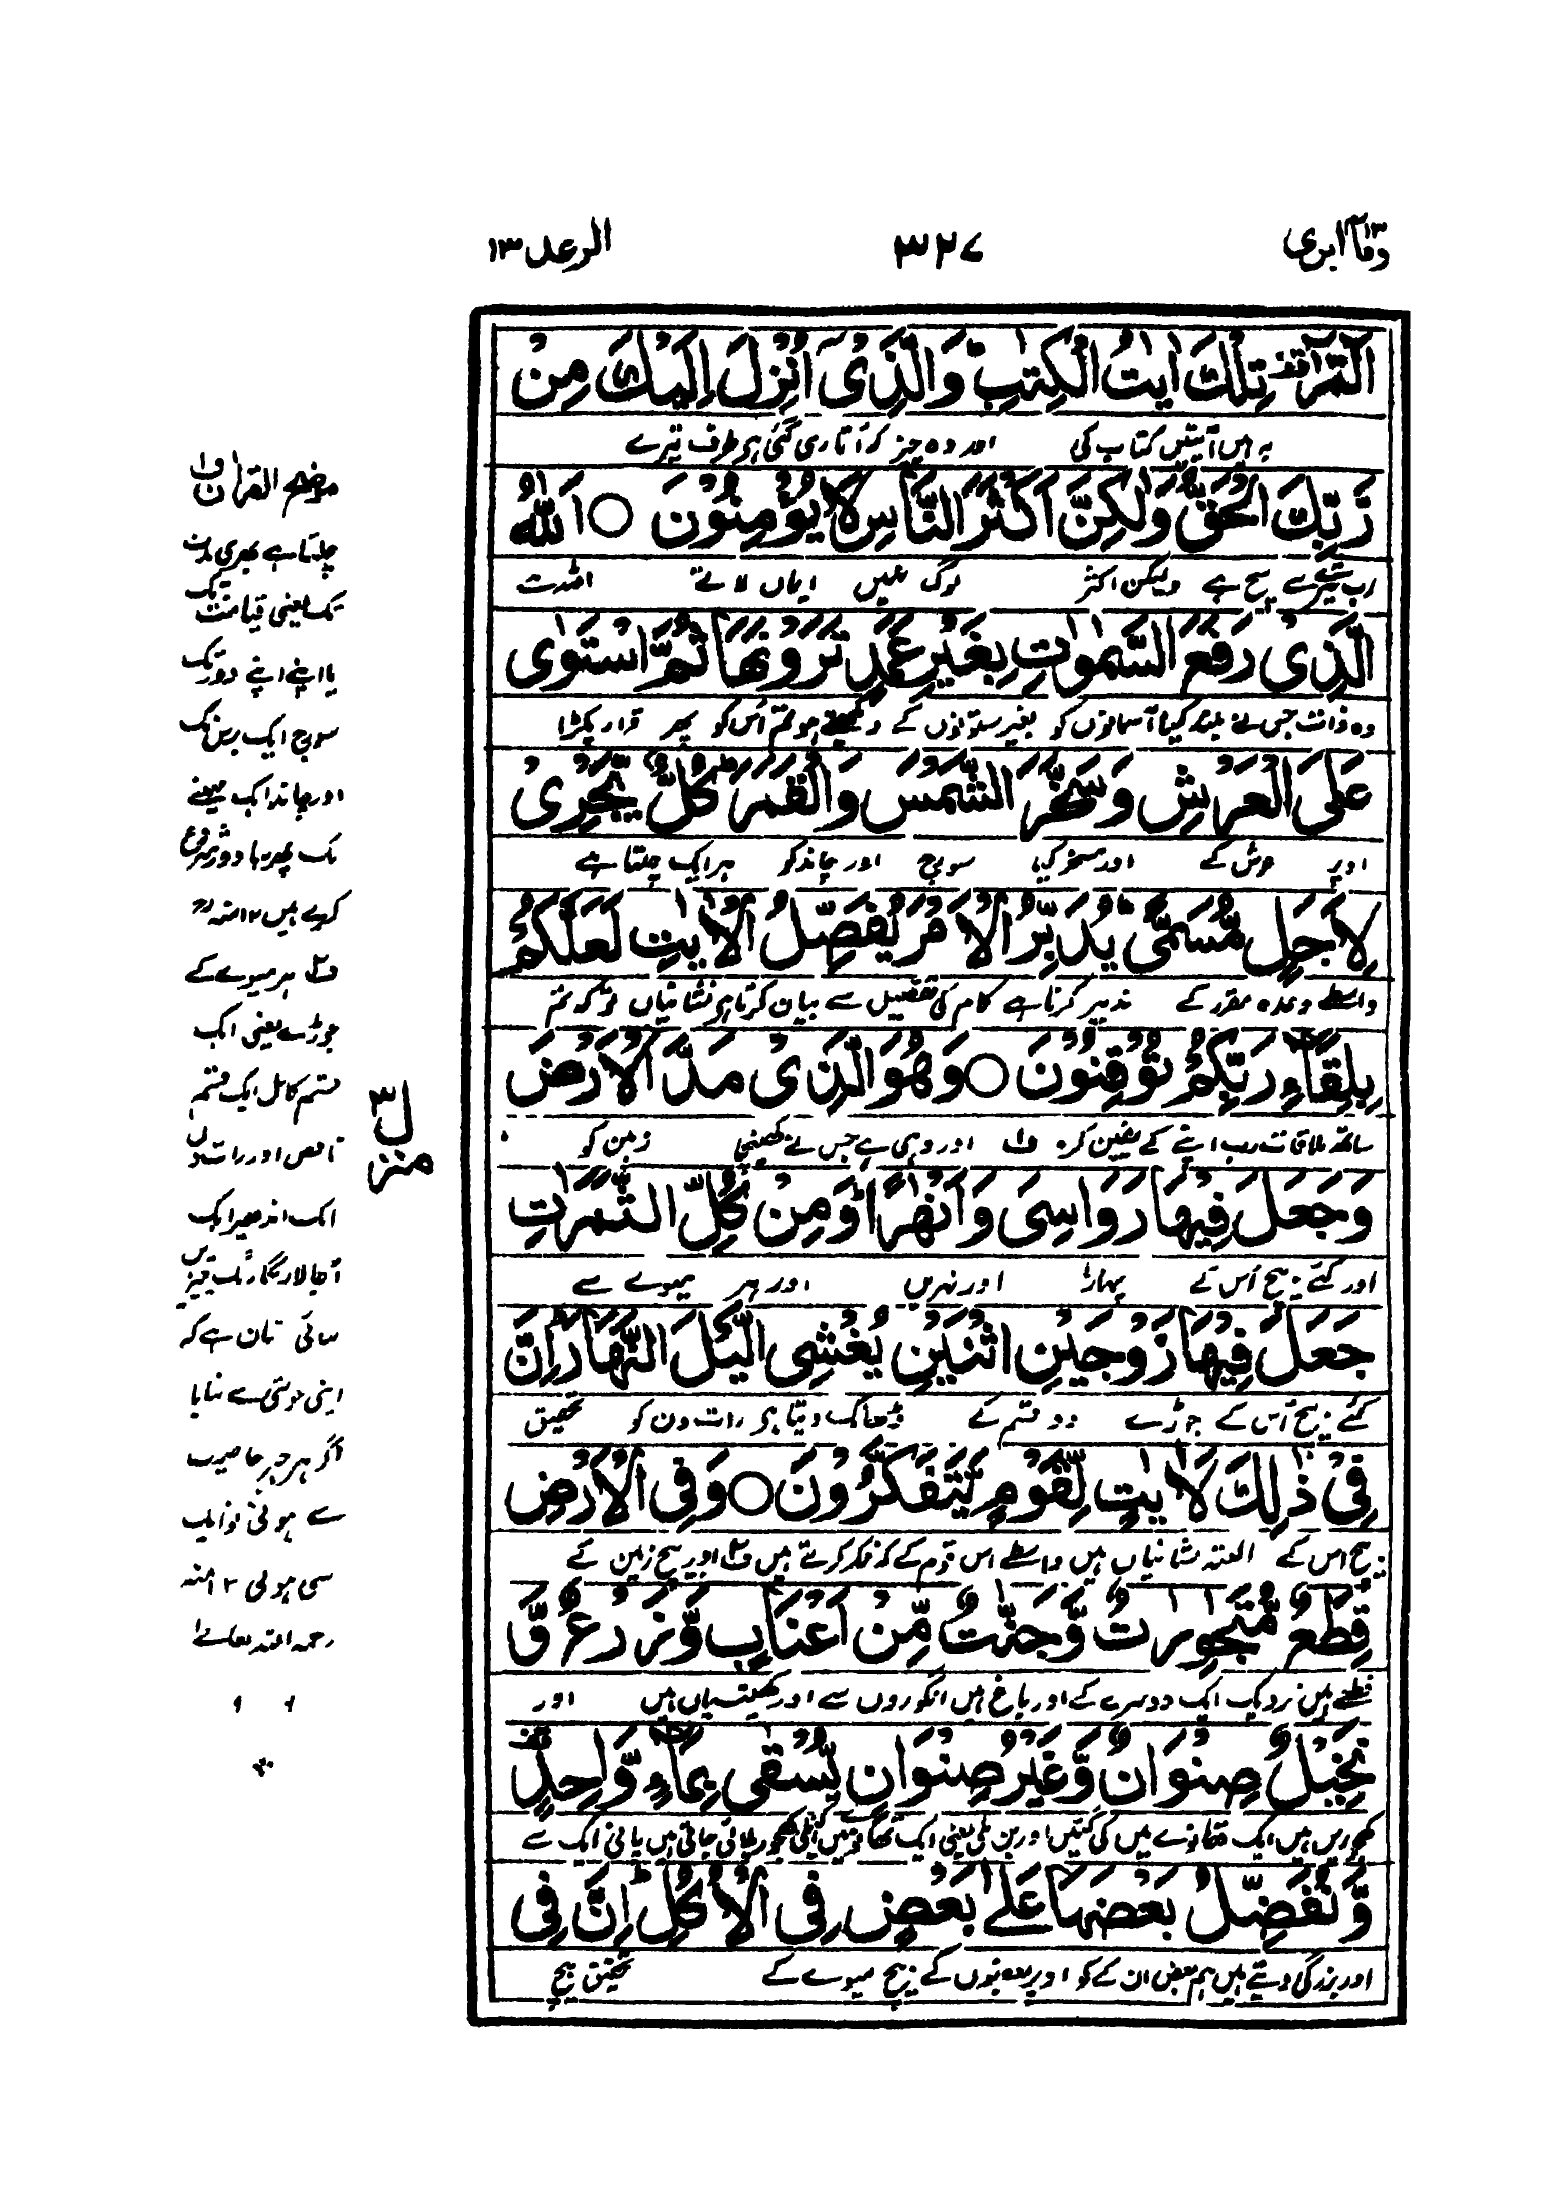 وما ابری ۱۳
۳۲۷
الرعد ۱۳
الٓمّٓرٰ تِلْكَ اٰیٰتُ الْكِتٰبِ وَالَّذِیْۤ اُنْزِلَ اِلَیْكَ مِنْ
یہ ہیں آیتیں کتاب کی اور وہ چیز کہ اتاری گئی ہے طرف تیرے
رَّبِّكَ الْحَقُّ وَلٰكِنَّ اَكْثَرَ النَّاسِ لَا یُؤْمِنُوْنَ ○ اَللّٰهُ
رب تیرے سے سچ ہے ولیکن اکثر لوگ نہیں ایمان لاتے
الَّذِیْ رَفَعَ السَّمٰوٰتِ بِغَیْرِ عَمَدٍ تَرَوْنَهَا ثُمَّ اسْتَوٰی
وہ ذات جس نے بلند کیا آسمانوں کو بغیر ستونوں کے دیکھتے ہو تم اُس کو پھر قرار پکڑا
عَلَی الْعَرْشِ وَسَخَّرَ الشَّمْسَ وَالْقَمَرَ كُلٌّ یَّجْرِیْ
اوپر عرش کے اور مسخر کیا سورج اور چاند کو ہر ایک چلتا ہے
لِاَجَلٍ مُّسَمًّی یُدَبِّرُ الْاَمْرَ یُفَصِّلُ الْاٰیٰتِ لَعَلَّكُمْ
واسطے وعدہ مقرر کے تدبیر کرتا ہے کام کی تفصیل سے بیان کرتا ہے نشانیاں تو کہ تم
بِلِقَآءِ رَبِّكُمْ تُوْقِنُوْنَ ○ وَهُوَ الَّذِیْ مَدَّ الْاَرْضَ
ساتھ ملاقات رب اپنے کے یقین کرو ف۱ اور وہی ہے جس نے کھینچی زمین کو
وَجَعَلَ فِیْهَا رَوَاسِیَ وَاَنْهٰرًا وَمِنْ كُلِّ الثَّمَرٰتِ
اور کئے بیچ اُس کے پہاڑ اور نہریں اور ہر میوے سے
جَعَلَ فِیْهَا زَوْجَیْنِ اثْنَیْنِ یُغْشِی الَّیْلَ النَّهَارَ اِنَّ
کئے بیچ اُس کے جوڑے دو قسم کے ڈھانک دیتا ہے رات دن کو تحقیق
فِیْ ذٰلِكَ لَاٰیٰتٍ لِّقَوْمٍ یَّتَفَكَّرُوْنَ ○ وَفِی الْاَرْضِ
بیچ اس کے البتہ نشانیاں ہیں واسطے اس قوم کے کہ فکر کرتے ہیں ف۲ اور بیچ زمین کے
قِطَعٌ مُّتَجٰوِرٰتٌ وَّجَنّٰتٌ مِّنْ اَعْنَابٍ وَّزَرْعٌ وَّ
قطعے ہیں نزدیک ایک دوسرے کے اور باغ ہیں انگوروں سے اور کھیتیاں ہیں اور
نَخِیْلٌ صِنْوَانٌ وَّغَیْرُ صِنْوَانٍ یُّسْقٰی بِمَآءٍ وَّاحِدٍ
کھجوریں ہیں ایک پانی ایک سے
وَّنُفَضِّلُ بَعْضَهَا عَلٰی بَعْضٍ فِی الْاُكُلِ اِنَّ فِیْ
اور بزرگی دیتے ہیں ہم بعض ان کے کو اوپر بعضوں کے بیچ میوے کے تحقیق بیچ
منزل ۳
موضح القرآن ف۱
چلتا ہے
تک یعنی قیامت تک
یا اپنے اپنے دور تک
سورج ایک برس تک
اور چاند ایک مہینے
تک پھر نیا دور شروع
کرے ہیں ۱۲ منہ رح
ف۲ ہر میوے کے
جوڑے یعنی ایک
قسم کامل ایک قسم
ناقص اور رات دن
ایک اندھیرا ایک
اجالا
ہے کہ
اپنی خوشی سے بنایا
اگر ہر چیز خاصیت
سے ہوتی تو ایک
سی ہوتی ۱۲ منہ
رحمہ اللہ تعالے